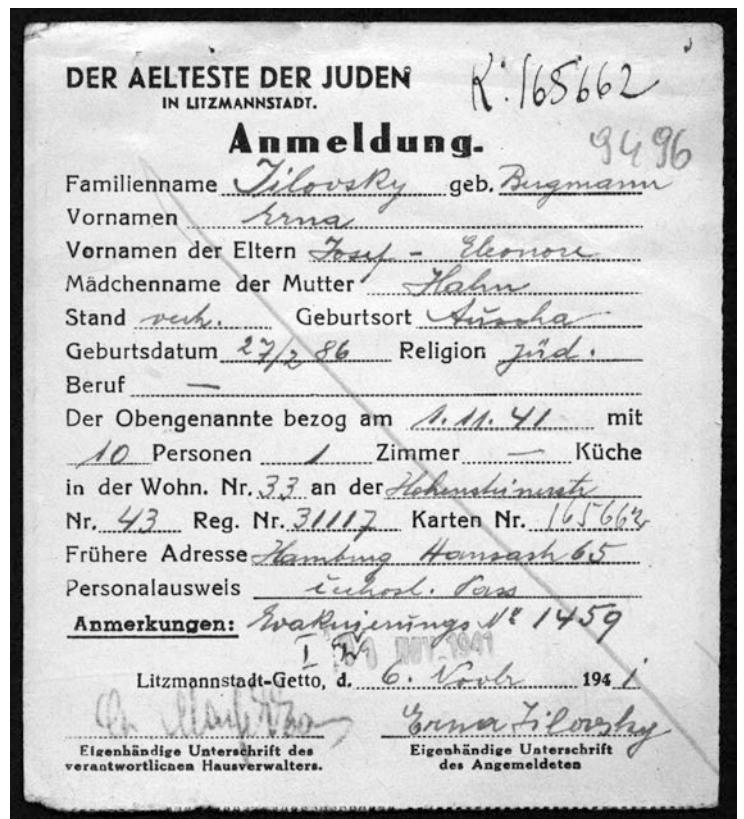 DER AELTESTE DER JUDEN
IN LITZMANNSTADT.
K: 165662
Anmeldung.
9496
Familienname Jilovsky geb. Bergmann
Vornamen Erna
Vornamen der Eltern Josef - Eleonore
Mädchenname der Mutter Hahn
Stand verh. Geburtsort Auscha
Geburtsdatum 27/2 86 Religion jüd.
Beruf —
Der Obengenannte bezog am 1.11.41 mit
10 Personen 1 Zimmer — Küche
in der Wohn. Nr. 33 an der Hohensteinerstr
Nr. 43 Reg. Nr. 31117 Karten Nr. 165662
Frühere Adresse Hamburg Hansastr 65
Personalausweis Pass
Anmerkungen: Evakuierungs Nr 1459
NOV. 1941
Litzmannstadt-Getto, d. 6. Novbr 1941
Erna Jilovsky
Eigenhändige Unterschrift des
verantwortlichen Hausverwalters.
Eigenhändige Unterschrift
des Angemeldeten